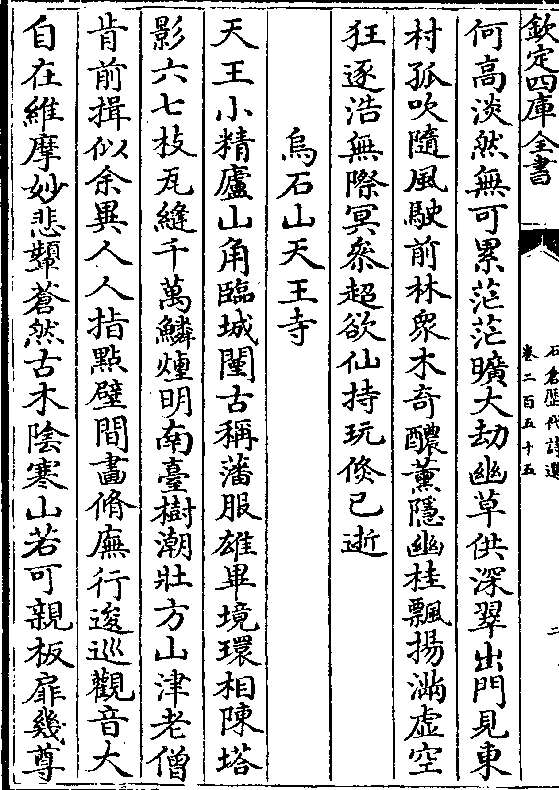 欽定四庫全書
石倉歷代詩選
卷二百五十五
二
何高淡然無可累茫茫曠大劫幽草供深翠出門見東
村孤吹隨風駛前林衆木奇醲薰隱幽桂飄揚滿虛空
狂逐浩無際冥叅超欲仙持玩倐已逝
烏石山天王寺
天王小精廬山角臨城闉古稱藩服雄畢境環相陳塔
影六七枝瓦縫千萬鱗煙明南臺樹潮壯方山津老僧
肯前揖似余異人人指點壁間畫脩廡行逡巡觀音大
自在維摩妙悲顰蒼然古木陰寒山若可親板扉幾尊